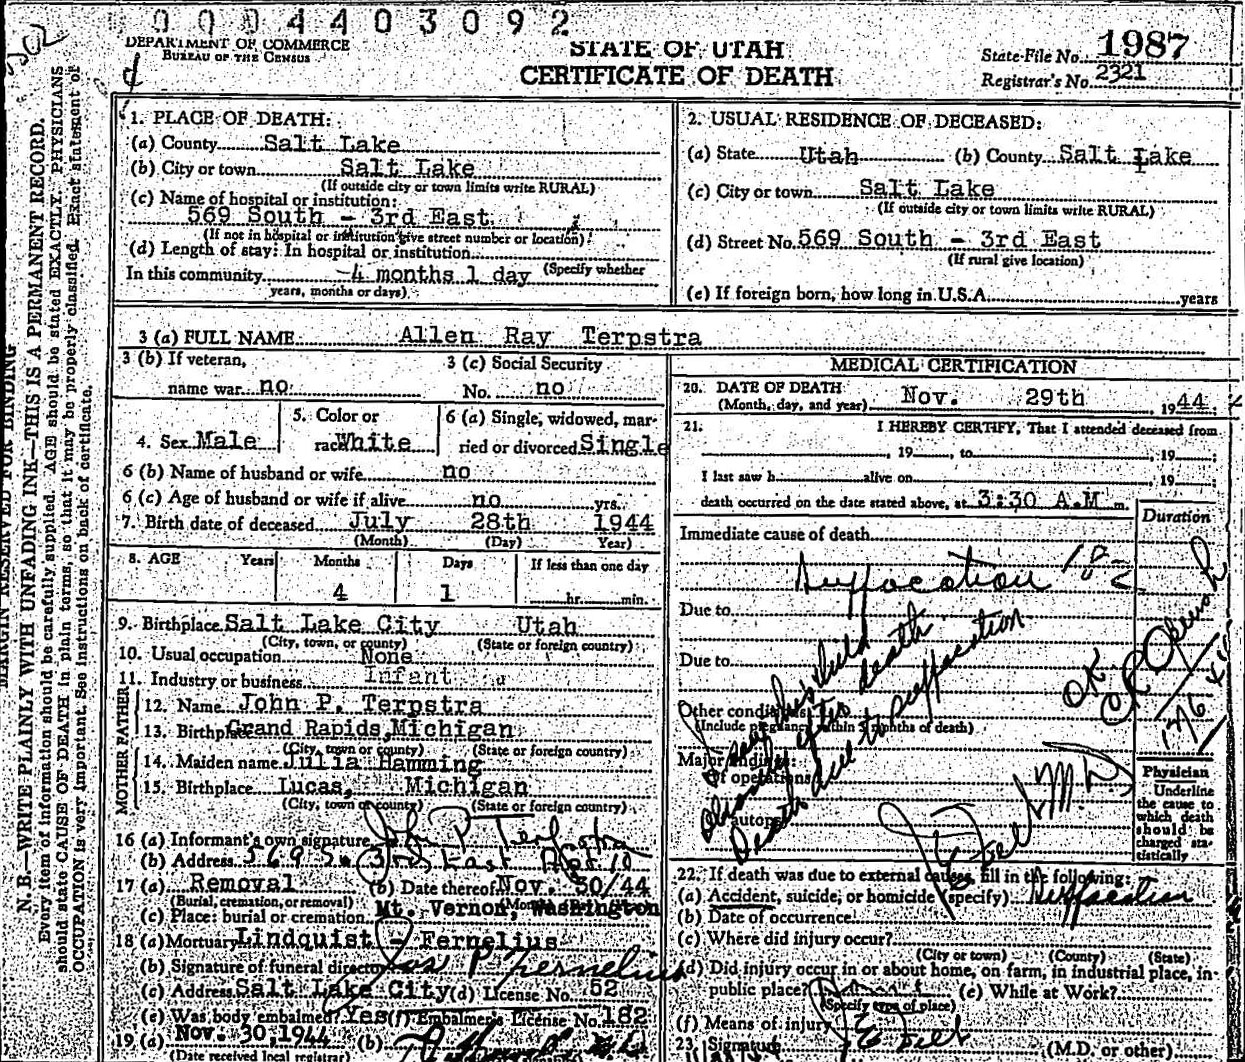 0004403092
DEPARTMENT OF COMMERCE
BUREAU OF THE CENSUS
STATE OF UTAH
CERTIFICATE OF DEATH
State File No. 1987
Registrar's No. 2321
MARGIN RESERVED FOR BINDING
N. B.—WRITE PLAINLY WITH UNFADING INK—THIS IS A PERMANENT RECORD.
Every item of information should be carefully supplied. AGE should be stated EXACTLY. PHYSICIANS
should state CAUSE OF DEATH in plain terms, so that it may be properly classified. Exact statement of
OCCUPATION is very important. See instructions on back of certificate.
1. PLACE OF DEATH:
(a) County Salt Lake
(b) City or town Salt Lake
(If outside city or town limits write RURAL)
(c) Name of hospital or institution:
569 South - 3rd East
(If not in hospital or institution give street number or location)
(d) Length of stay: In hospital or institution
In this community 4 months 1 day (Specify whether
years, months or days)
2. USUAL RESIDENCE OF DECEASED:
(a) State Utah (b) County Salt Lake
(c) City or town Salt Lake
(If outside city or town limits write RURAL)
(d) Street No. 569 South - 3rd East
(If rural give location)
(e) If foreign born, how long in U.S.A. years
3 (a) FULL NAME Allen Ray Terpstra
3 (b) If veteran,
name war no
3 (c) Social Security
No. no
4. Sex Male
5. Color or
race White
6 (a) Single, widowed, mar-
ried or divorced Single
6 (b) Name of husband or wife no
6 (c) Age of husband or wife if alive no yrs.
7. Birth date of deceased July 28th 1944
(Month) (Day) Year)
8. AGE Years Months Days If less than one day
4 1 hr. min.
9. Birthplace Salt Lake City Utah
(City, town, or county) (State or foreign country)
10. Usual occupation None
11. Industry or business Infant
MOTHER FATHER
12. Name John P. Terpstra
13. Birthplace Grand Rapids, Michigan
(City, town or county) (State or foreign country)
14. Maiden name Julia Hamming
15. Birthplace Lucas, Michigan
(City, town or county) (State or foreign country)
16 (a) Informant's own signature John P Terpstra
(b) Address 569 So 3rd East Apt 10
17 (a) Removal (b) Date thereof Nov. 30/44
(Burial, cremation, or removal)
(c) Place: burial or cremation Mt. Vernon, Washington
18 (a) Mortuary Lindquist - Fernelius
(b) Signature of funeral director Jos P Fernelius
(c) Address Salt Lake City (d) License No. 52
(e) Was body embalmed? Yes (f) Embalmer's License No. 182
19 (a) Nov. 30, 1944 (b)
(Date received local registrar)
MEDICAL CERTIFICATION
20. DATE OF DEATH
(Month, day, and year) Nov. 29th, 1944
21. I HEREBY CERTIFY, That I attended deceased from
, 19 , to , 19
I last saw h alive on , 19
death occurred on the date stated above, at 3:30 A.M. m.
Duration
Immediate cause of death
Suffocation
Due to
Due to
I saw this child
after death
Death due to suffocation
J E Felt M.D.
OK
12/6
Other conditions
(Include pregnancy within 3 months of death)
Major findings:
Of operations
autopsy
Physician
Underline
the cause to
which death
should be
charged sta-
tistically
22. If death was due to external causes, fill in the following:
(a) Accident, suicide, or homicide (specify) Suffocation
(b) Date of occurrence
(c) Where did injury occur?
(City or town) (County) (State)
(d) Did injury occur in or about home, on farm, in industrial place, in-
public place? (e) While at Work?
(Specify type of place)
(f) Means of injury
23. Signature J E Felt
(M.D. or other)